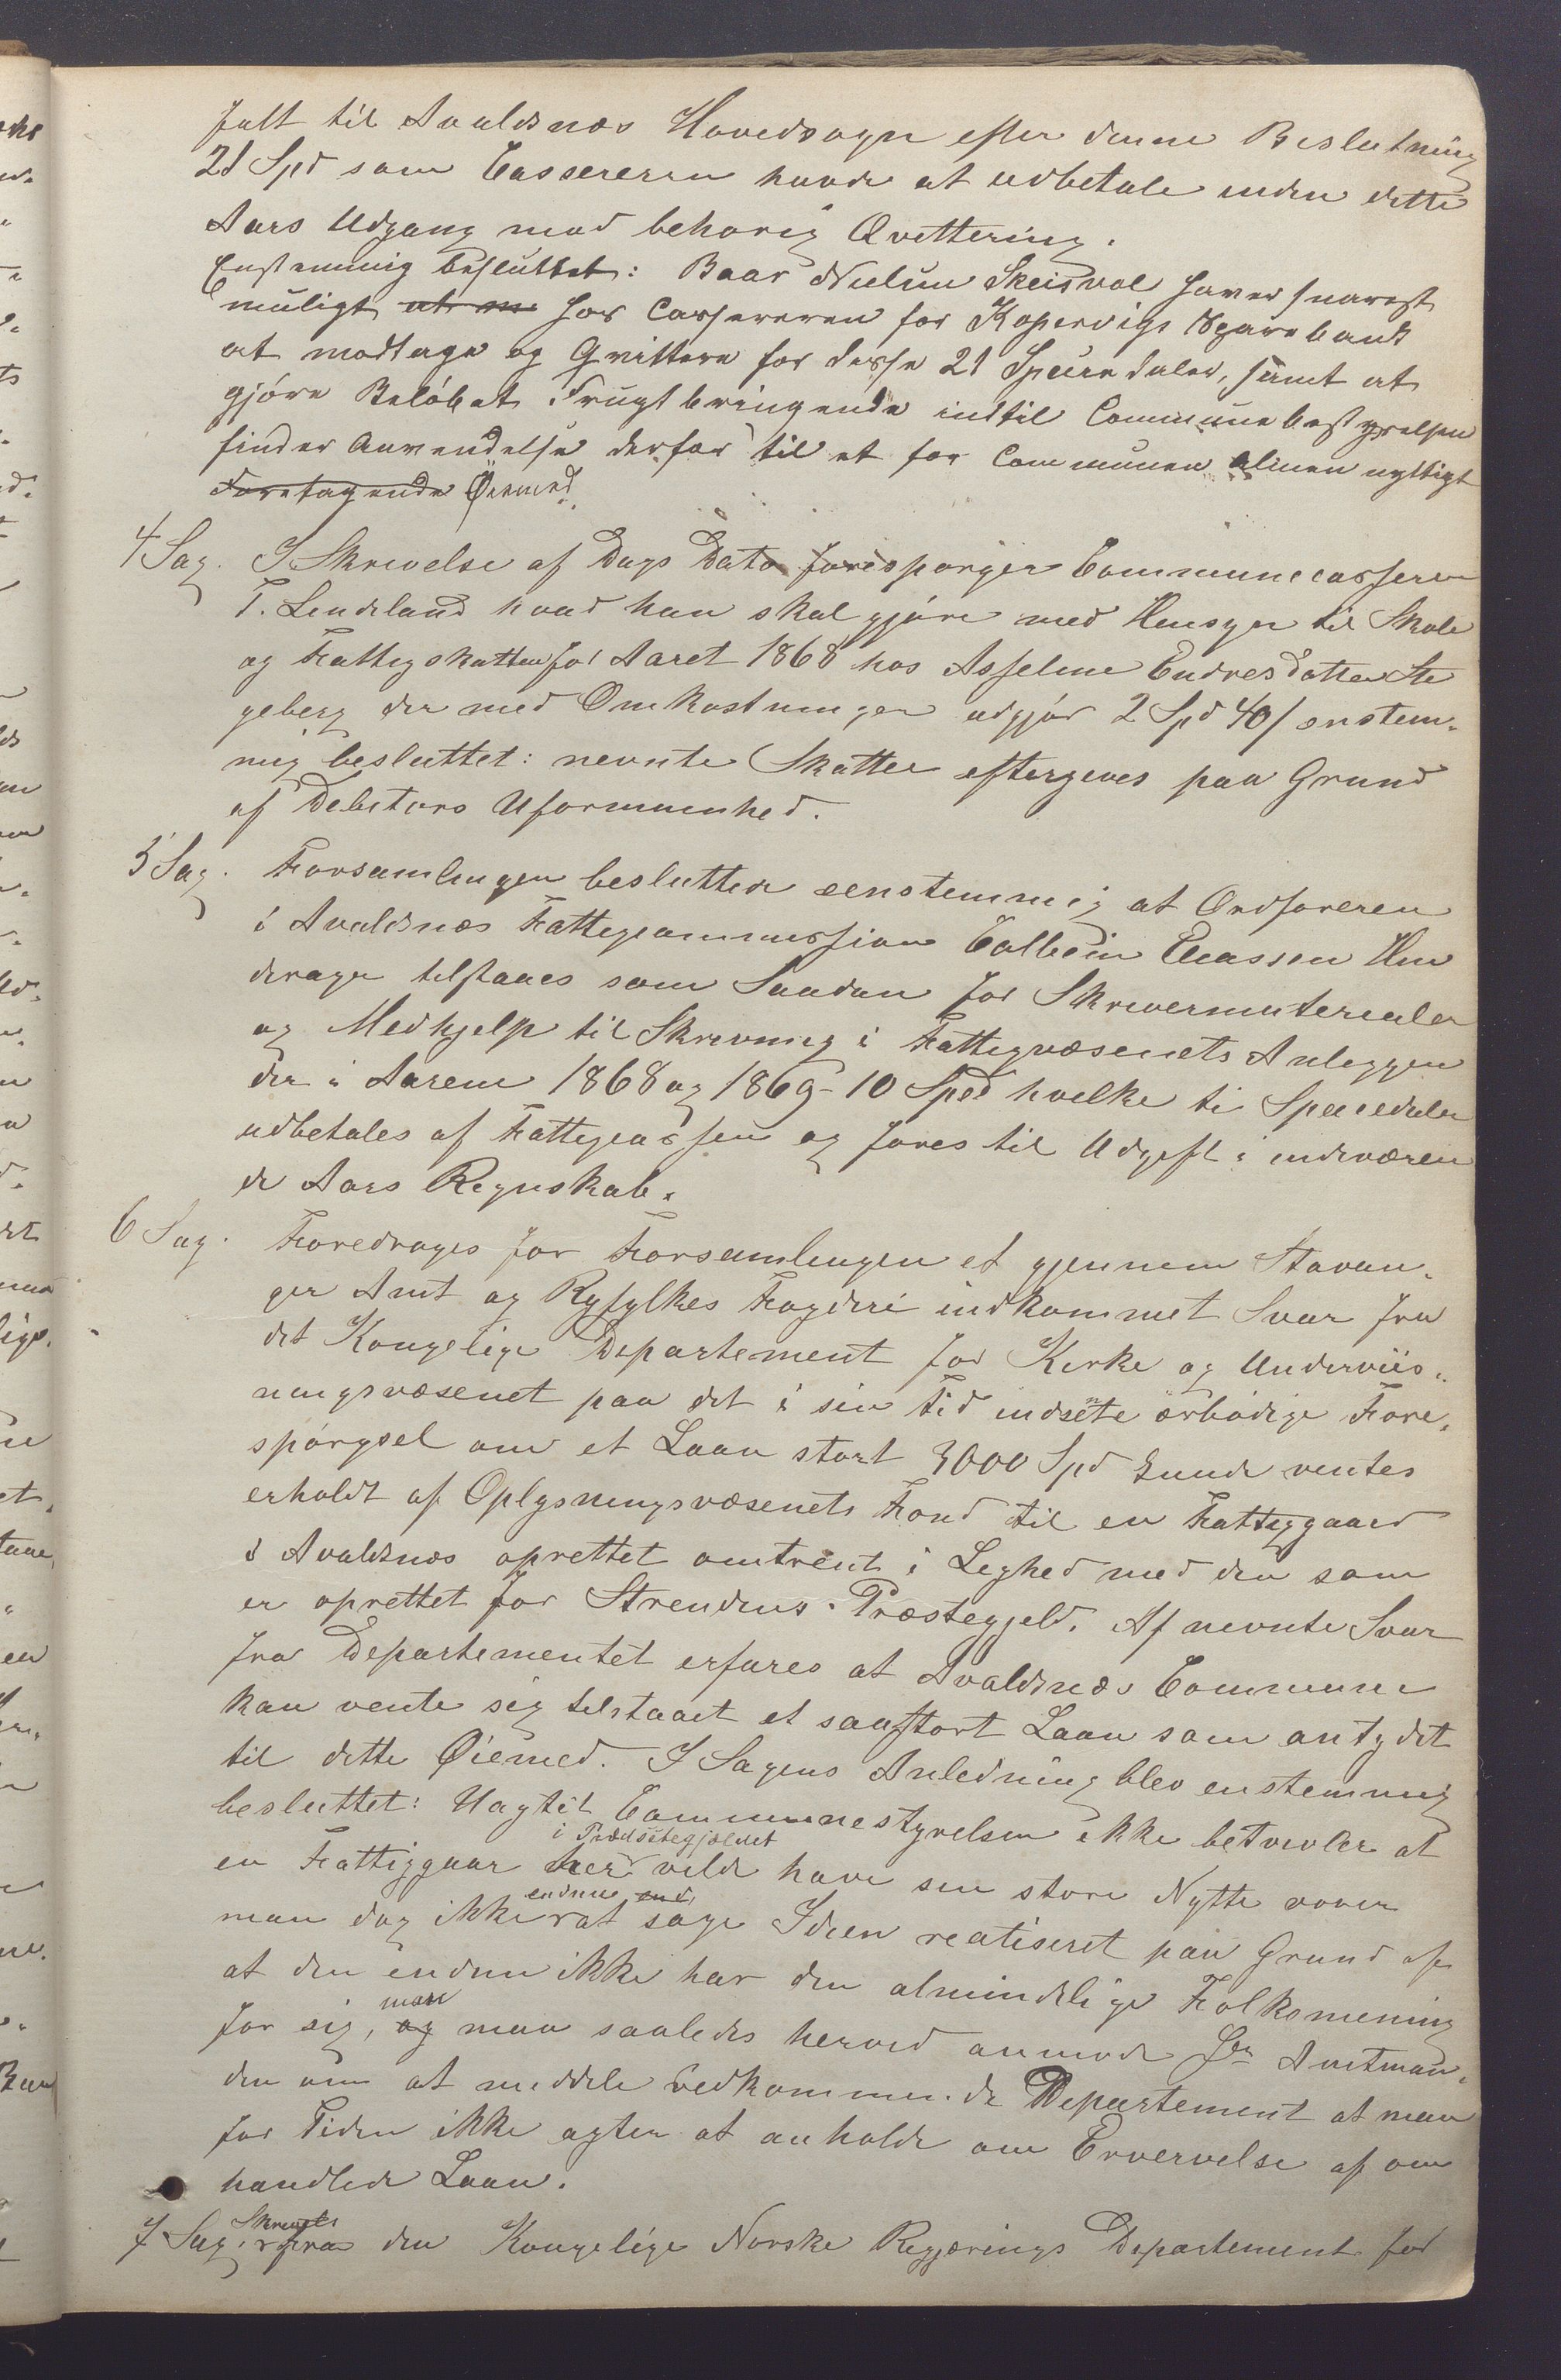 falt til Avaldsnæs Hovedsogn efter denne Beslutning
21 Spd som Cassereren havde at udbetale inden dette
Aars Udgang mod behørig Qvittering.
Enstemmig besluttet: Baar Nielsen Skeisvol haver snarest
muligt at m hos Cassereren for Kopervigs Sparebank
at modtage og Qvittere for disse 21 Speciedaler, samt at
gjöre Belöbet Frugtbringende indtil Communebestyrelsen
finder Anvendelse derfor til et for Communen almennyttigt
Foretagende Öiemed.
4 Sag. I Skrivelse af Dags Dato forespørger Communecasserer
T. Lindeland hvad han skal gjöre med Hensyn til Skole
og Fattigskatten for Aaret 1868 hos Asseline Endresdatter Ste
geberg der med Omkostninger udgjör 2 Spd 40 / enstem-
mig besluttet: nevnte Skatter eftergives paa Grund
af Debitors Uformuenhed.
5 Sag. Forsamlingen beslutter eenstemmig at Ordføreren
i Avaldsnæs Fattigcommission Colbein Eliassen Hin
derager tilstaaes som Saadan for Skrivermaterialer
og Medhjelp til Skrivning i Fattigvæsenets Anliggen
der i Aarene 1868 og 1869 - 10 Spd hvilke ti Speciedaler
udbetales af Fattigcassen og føres til Udgift i indeværen
de Aars Regnskab.
6 Sag. Foredroges for Forsamlingen et gjennem Stavan-
ger Amt og Ryfylkes Fogderi indkommet Svar fra
det Kongelige Departement for Kirke og Underviis-
ningsvæsenet paa det i sin Tid indsente ærbödige Fore-
spörgsel om et Laan stort 3000 Spd kunde ventes
erholdt af Oplysningsvæsenets Fond til en Fattiggaard
i Avaldsnæs oprettet omtrent i Lighed med den som
er oprettet for Strendens Præstegjeld. Af nevnte Svar
fra Departementet erfares at Avaldsnæs Commune
kan vente sig tilstaaet et saastort Laan som antydet
til dette Øiemed. I Sagens Anledning blev enstemmig
besluttet: Uagtet Communestyrelsen ikke betvivler at
i Prædstegjældet
en Fattiggaar her vilde have sin store Nytte vover
endnu end
man dog ikke at söge Ideen realiseret paa Grund af
at den endnu ikke har den almindelige Folkemening
man
for sig, og man saaledes herved anmode Hr Amtman-
den om at meddele Vedkommende Departement at man
for Tiden ikke agter at anholde om Ervervelse af om
handlede Laan.
Skrivelse
7 Sag. fra den Kongelige Norske Regjerings Departement for